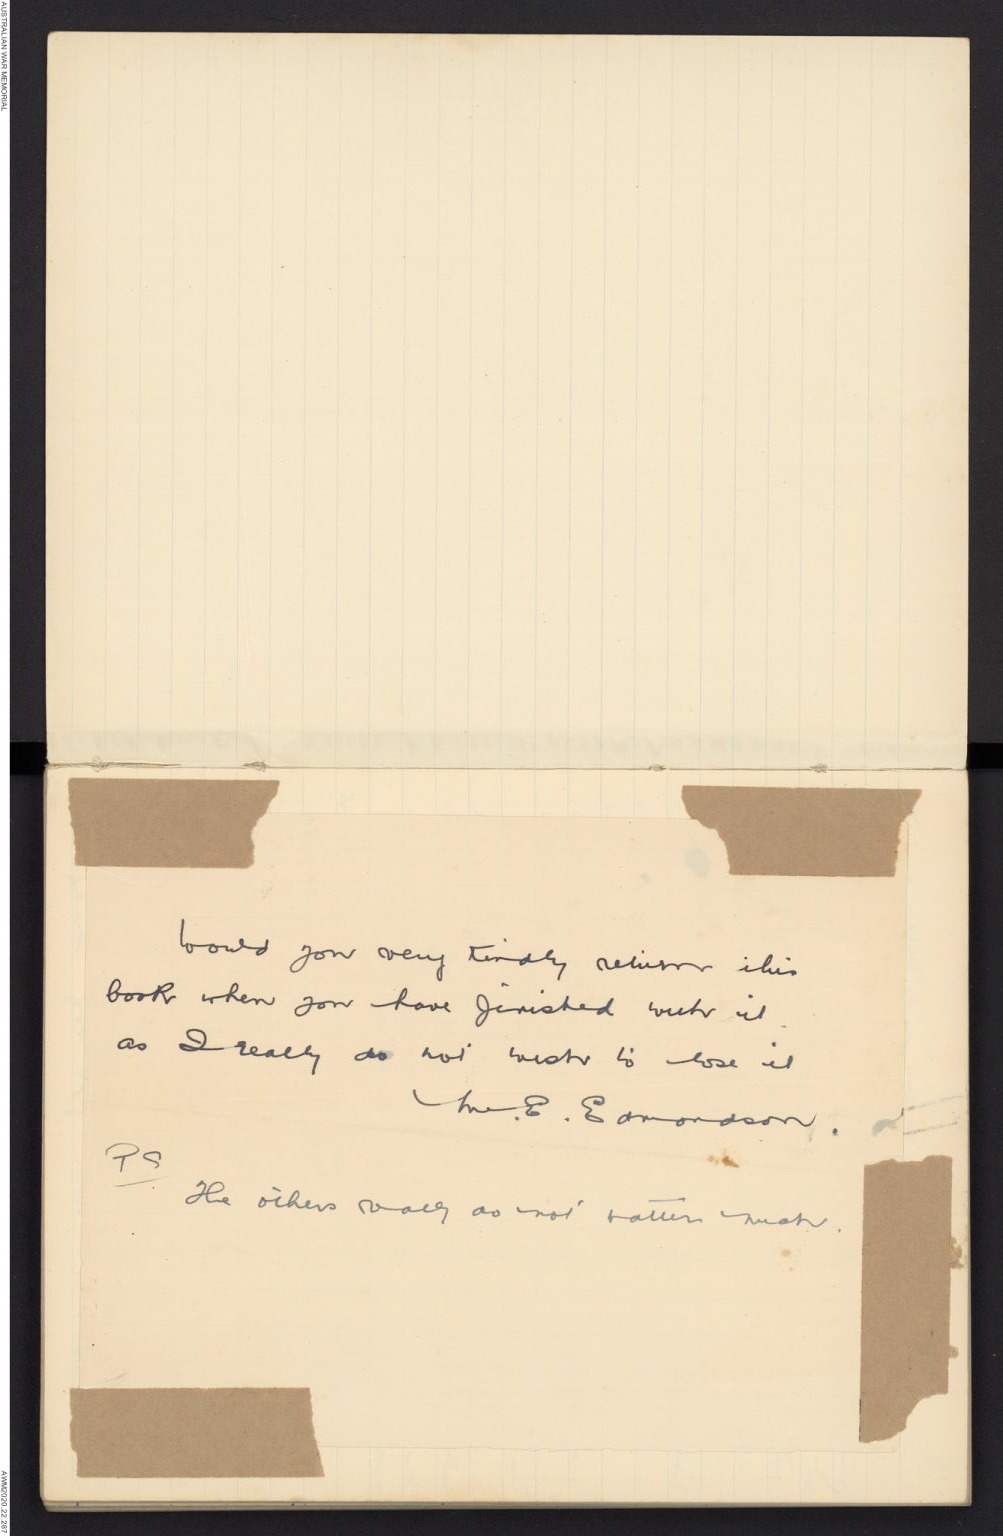 AUSTRALIAN WAR MEMORIAL
Would you very kindly return this
book when you have finished with it
as I really do not wish to lose it
M.E. Edmondson.
PS
The others really do not matter much.
AWM2020.22.287